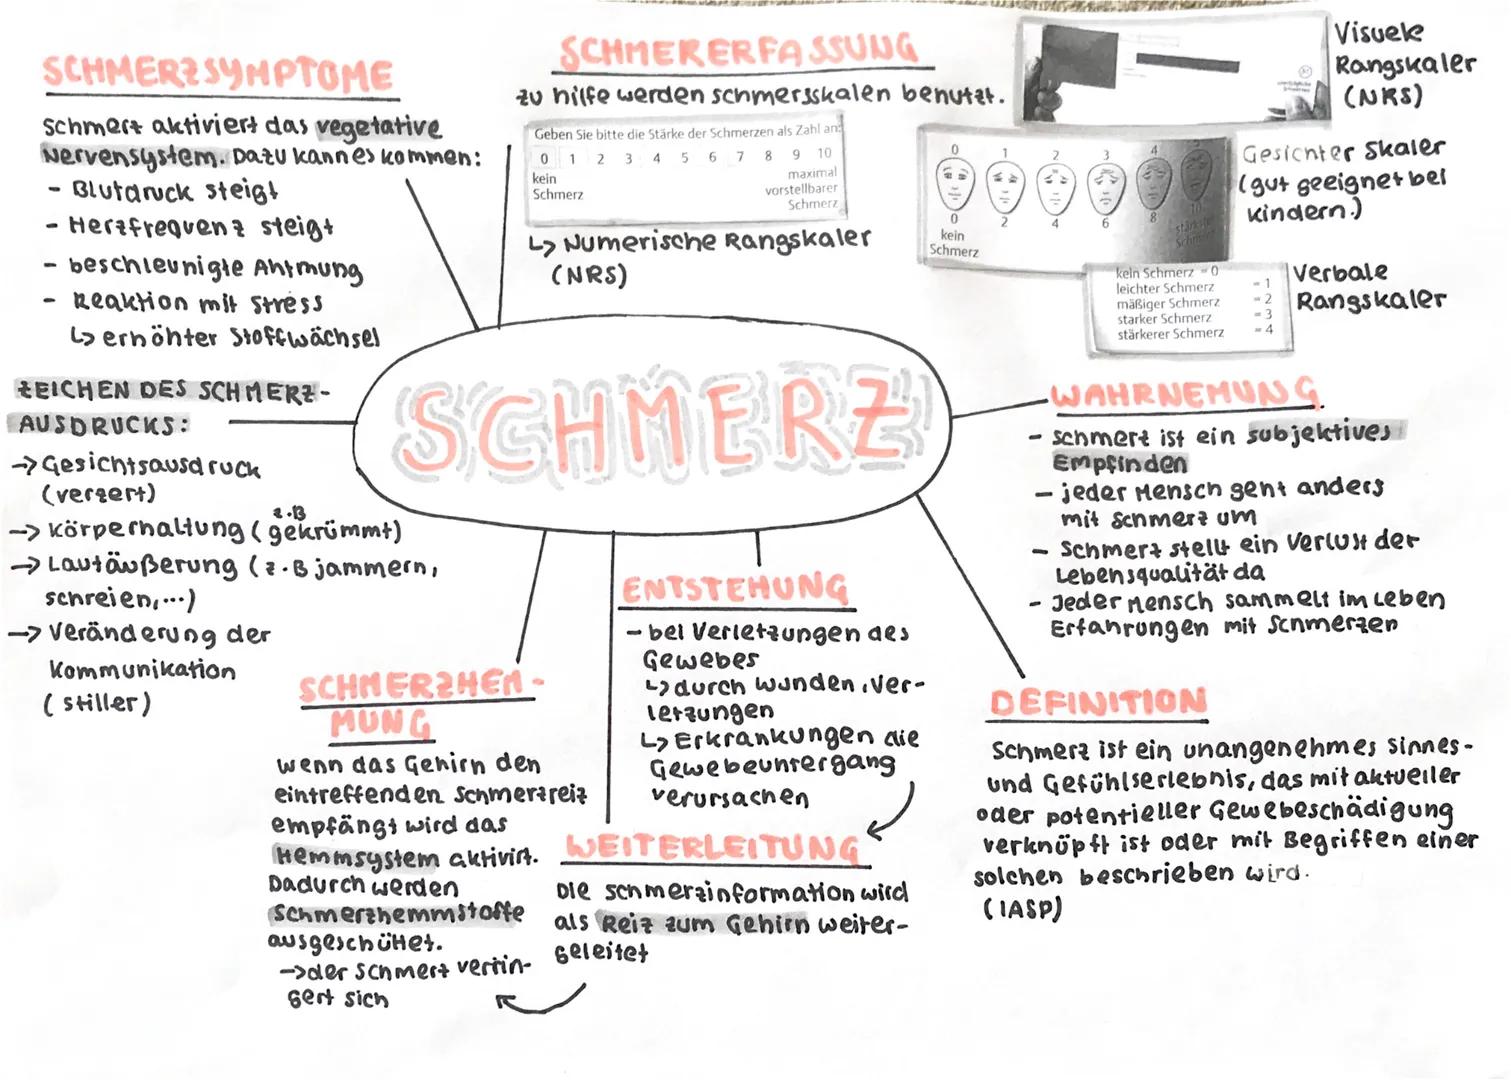 SCHMERZSYMPTOME
Schmerz aktiviert das vegetative
Nervensystem. Dazu kann es kommen:
- Blutdruck steigt
- Herzfrequenz steigt
- beschleunigte Ahtmung
- Reaktion mit Stress
↳ erhöhter Stoffwächsel
SCHMERERFASSUNG
zu hilfe werden schmersskalen benutzt.
Geben Sie bitte die Stärke der Schmerzen als Zahl an:
0 1 2 3 4 5 6 7 8 9 10
kein
Schmerz
maximal
vorstellbarer
Schmerz
↳ Numerische Rangskaler
(NRS)
Visuele
Rangskaler
(NRS)
0 1 2 3 4 5
0 2 4 6 8 10
kein
Schmerz
stärkster
Schmerz
Gesichter Skaler
(gut geeignet bei
kindern.)
kein Schmerz = 0
leichter Schmerz = 1
mäßiger Schmerz = 2
starker Schmerz = 3
stärkerer Schmerz = 4
Verbale
Rangskaler
SCHMERZ
ZEICHEN DES SCHMERZ-
AUSDRUCKS:
→ Gesichtsausdruck
(verzert)
→ Körperhaltung (z.B gekrümmt)
→ Lautäußerung (z.B jammern,
schreien,...)
→ Veränderung der
Kommunikation
(stiller)
WAHRNEMUNG
- schmerz ist ein subjektives
Empfinden
- jeder Mensch geht anders
mit Schmerz um
- Schmerz stellt ein Verlust der
Lebensqualität da
- Jeder Mensch sammelt im Leben
Erfahrungen mit Schmerzen
ENTSTEHUNG
- bei Verletzungen des
Gewebes
↳ durch wunden, Ver-
letzungen
↳ Erkrankungen die
Gewebeuntergang
verursachen
SCHMERZHEM-
MUNG
wenn das Gehirn den
eintreffenden Schmerzreiz
empfängt wird das
Hemmsystem aktivirt.
Dadurch werden
Schmerzhemmstoffe
ausgeschüttet.
→ der Schmerz verrin-
gert sich
WEITERLEITUNG
Die schmerzinformation wird
als Reiz zum Gehirn weiter-
geleitet
DEFINITION
Schmerz ist ein unangenehmes Sinnes-
und Gefühlserlebnis, das mit aktueller
oder potentieller Gewebeschädigung
verknüpft ist oder mit Begriffen einer
solchen beschrieben wird.
(IASP)